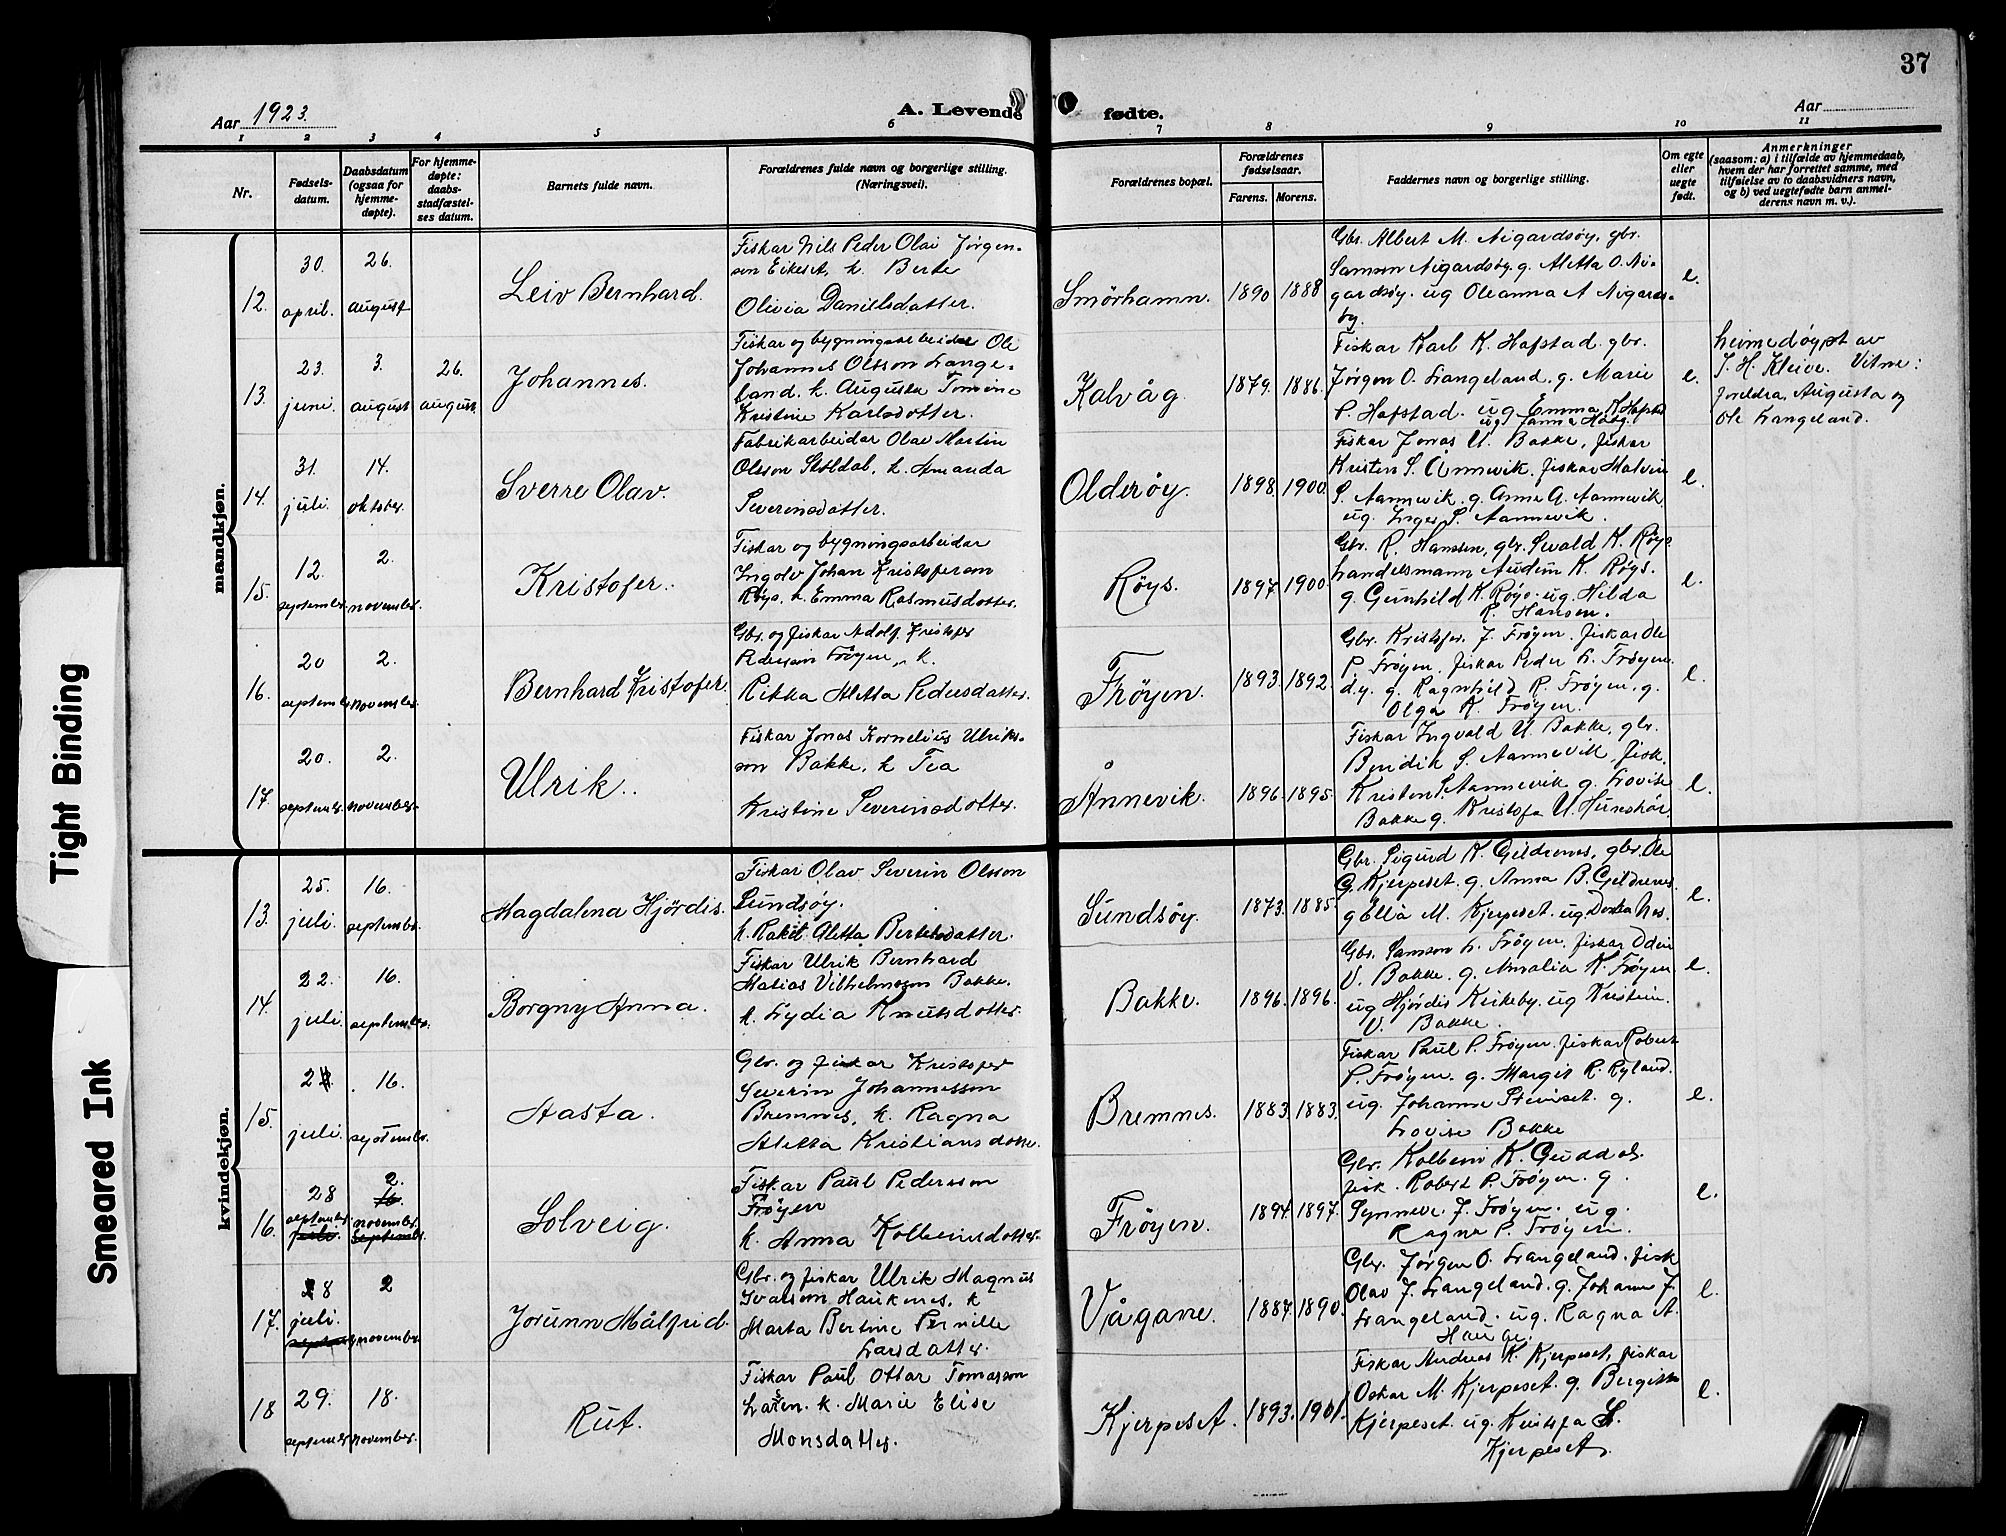 37
Aar 1923.
A. Levende fødte.
Aar
1 2 3 4 5 6 7 8 9 10 11
Nr.
Fødsels-
datum.
Daabsdatum
(ogsaa for
hjemme-
døpte).
For hjemme-
døpte:
daabs-
stadfæstel-
ses datum.
Barnets fulde navn.
Forældrenes fulde navn og borgerlige stilling.
(Næringsvei).
Forældrenes bopæl.
Forældrenes
fødselsaar.
Farens. Morens.
Faddernes navn og borgerlige stilling.
Om egte
eller
uegte
født.
Anmerkninger
(saasom: a) i tilfælde av hjemmedaab,
hvem der har forrettet samme, med
tilføielse av to daabsvidners navn,
og b) ved uegtefødte barn anmel-
derens navn m. v.).
mandkjøn.
12.
30.
april.
26.
august
Leiv Bernhard.
Fiskar Nils Peder Olai Jørgen-
son Eikeset, k. Berte
Olivia Danielsdatter.
Smörhamn.
1890 1888
Gbr. Albert M. Nigardsøy, gbr.
Samson Nigardsøy g. Aletta O. Ni-
gardsøy. ug Oleanna A Nigards-
øy.
e.
13.
23.
juni.
3.
august
26.
august
Johannes.
Fiskar og bygningsarbeider Ole
Johannes Olsson Lange-
land. k. Augusta Tomine
Kristine Karlsdotter.
Kalvåg.
1879. 1886.
Fiskar Karl K. Hafstad. gbr.
Jørgen O. Langeland. g. Marie
P. Hafstad. ug Emma K Hafstad
ug Janna
e.
heimedøypt av
J. H. Kleive. Vitne:
foreldra, Augusta og
Ole Langeland.
14.
31.
juli.
14.
oktober.
Sverre Olav.
Fabrikarbeidar Olav Martin
Olsson Støldal, k. Amanda
Severinsdatter.
Olderøy.
1898. 1900.
Fiskar Jonas U. Bakke, fiskar
Kristen S. Ånnevik. fiskar Malvin
S. Aannevik. g. Anna A. Aannevik
ug. Inger S. Aannevik.
e.
15.
12.
september.
2.
november.
Kristofer.
Fiskar og bygningsarbeidar
Ingolv Johan Kristoferson
Røys, k. Emma Rasmusdotter.
Røys.
1897. 1900.
Gbr. R. Hanssen, gbr. Sevald K. Røys
handelsmann Audun K. Røys.
g. Gunhild K. Røys. ug. Hilda
R. Hansen.
e.
16.
20
september
2.
november.
Bernhard Kristofer.
Gbr. og fiskar Adolf Kristofer
Pederson Frøyen, k.
Rikka Aletta Pedersdatter.
Frøyen.
1893. 1892.
Gbr. Kristofer J. Frøyen. fiskar Ole
P. Frøyen. fiskar Peder L. Frøyen.
d.y. g. Ragnhild R. Frøyen. g.
Olga K. Frøyen.
e.
17.
20.
september.
2.
november.
Ulrik.
Fiskar Jonas Kornelius Ulriks-
son Bakke, k Tea
Kristine Severinsdotter.
Ånnevik.
1896. 1895.
Fiskar Ingvald U. Bakke, gbr.
Bendik S. Aannevik fisk.
Kristen S. Aannevik g. Lovise
Bakke g. Kristofa U. Hunskår.
e.
kvindekjøn.
13.
25.
juli.
16.
september.
Magdalena Hjördis.
Fiskar Olav Severin Olsson
Sundsøy.
k. Rakel Aletta Bertelsdatter.
Sundsøy.
1873. 1885.
Gbr. Sigurd K. Geldrenes, gbr. Ole
G. Kjerpeset. g. Anna B. Geldrenes.
g Ella M. Kjerpeset. ug. Nes.
e.
14.
22.
juli.
16.
september.
Borgny Anna.
Fiskar Ulrik Bernhard
Matias Vilhelmson Bakke.
k. Lydia Knutsdotter.
Bakke.
1896. 1896.
Gbr. Samson L. Frøyen. fiskar Odin
V. Bakke. g. Amalia K. Frøyen
ug Hjördis Kirkeby. ug Kristin.
V. Bakke.
e.
15.
juli.
16.
september.
Aasta.
Gbr. og fiskar Kristofer
Severin Johannesson
Bremnes, k. Ragna
Aletta Kristiansdotter.
Bremnes.
1883. 1883.
Fiskar Paul P. Frøyen. fiskar Robert
P. Frøyen. g. Margit R. Ryland.
ug. Johanna Steinset. g.
Lovise Bakke
e.
16.
28
september
juli.
2.
16.
november
september.
Solveig.
Fiskar Paul Pedersson
Frøyen
k. Anna Kolbeinsdotter.
Frøyen.
1894. 1897.
Gbr. Kolbein K. Guddal.
fisk. Robert P. Frøyen. g.
Synneve J. Frøyen. ug.
Ragna P. Frøyen.
e.
17.
8
juli.
2
november.
Jorunn Målfrid.
Gbr. og fiskar Ulrik Magnus
Ivarson Haukenes, k
Marta Bertine Pernille
Larsdotter.
Vågane.
1887. 1890.
Gbr. Jørgen O. Langeland. fisk
Olav J. Langeland. g. Johanna J.
Langeland. ug. Ragna A.
Hauge.
e.
18
29.
september
18.
november.
Rut.
Fiskar Paul Ottar Tomasson
Larsen. k. Marie Elise
Monsdatter.
Kjerpeset.
1893. 1901.
Fiskar Andreas K. Kjerpeset, fiskar
Oskar M. Kjerpeset. g. Bergitta
Kjerpeset. ug. Kristofa S.
Kjerpeset.
e.
Tight Binding
Smeared Ink